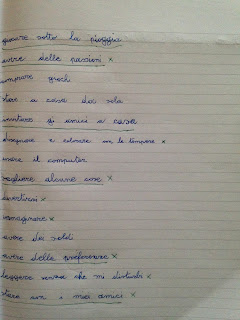 giocare sotto la pioggia
avere delle passioni x
comprare giochi
stare a casa da sola
invitare gli amici a casa
disegnare e colorare con le tempere x
usare il computer
scegliere alcune cose x
divertirsi x
immaginare x
avere dei soldi
avere delle preferenze x
leggere senza che mi disturbi x
stare con i miei amici x